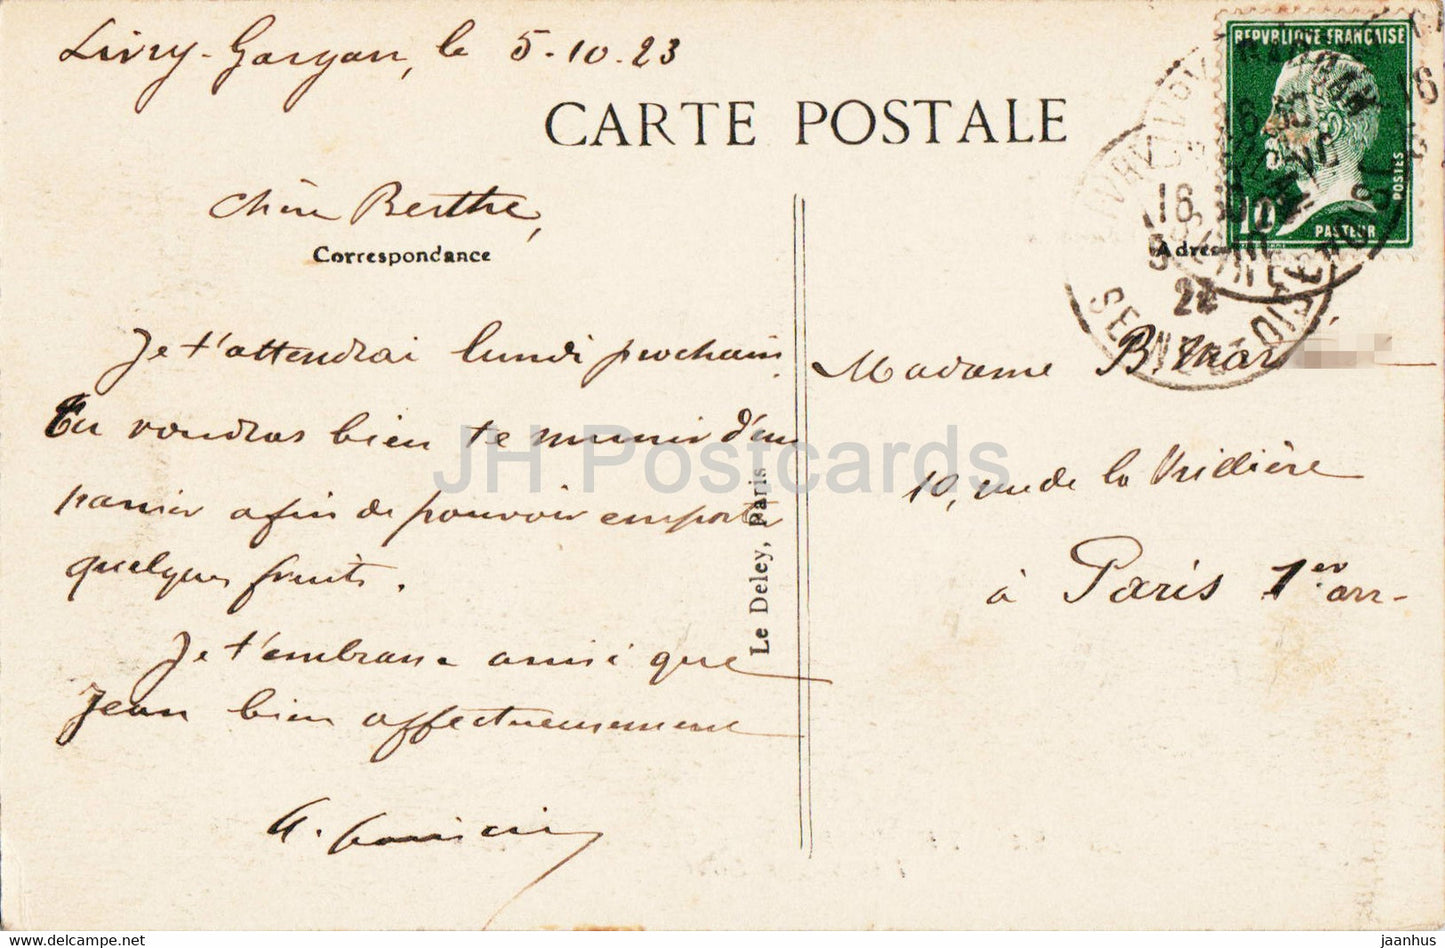 Livry-Gargan, le 5-10-23
CARTE POSTALE
REPVBLIQVE FRANÇAISE
POSTES
10
PASTEUR
Chère Berthe,
Correspondance
Adres
16 30
SEINE-ET-OISE
Je t'attendrai lundi prochain
Tu voudras bien te munir d'un
panier afin de pouvoir emporter
quelques fruits.
Je t'embrasse ainsi que
Jean bien affectueusement
Madame B. Mar
10, rue de la Vrillière
à Paris 1er arr-
Le Deley, Paris
JH Postcards
www.delcampe.net
jaanhus